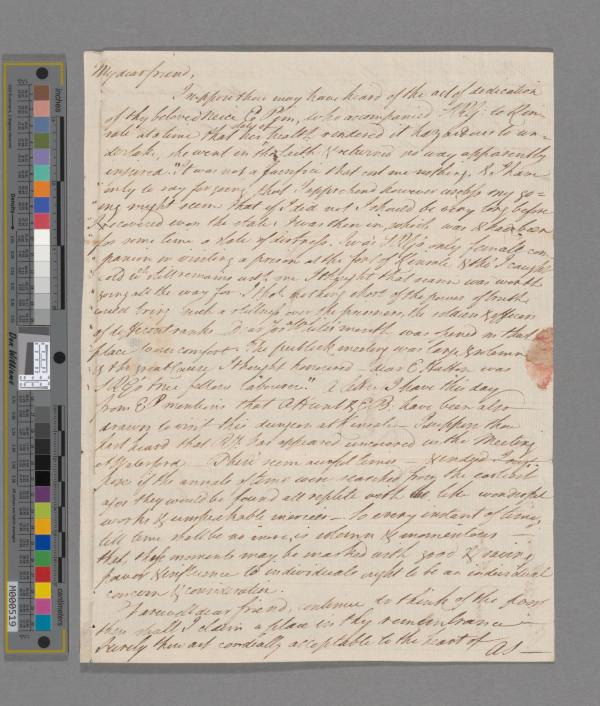 My dear friend,
I suppose thou may have heard of the act of dedication
of thy beloved niece E. Pim, who accompanied to Kin
sale at a time that her state of health rendered it hazardous to un
dertake, she went in the faith & returned no way apparently
injured. "It was not a sacrifice that cost me nothing, & I have
only to say for going that I apprehend however useless my go=
ing might seem that if I did not I should be very long before
I recovered even the state I was then in, which was & had been
for some time a state of distress. I was only female com
panion in visiting a prison at the fort of Kinsale & tho' I caught
cold wch. still remains with me I thought that season was worth
going all the way for I think nothing short of the power of truth
could bring such a stillness over the prisoners, the soldiers & officers
of different ranks
place comfort. The publick meeting was large & solemn
& the great cause I thought honoured - dear E. Hatton was
fellow labourer." A letter I have this day
from E P mentions that A Hunt & E. B. have been also
drawn to visit this dungeon at Kinsale - I suppose thou
hast heard that has appeared in the Meeting
at Waterford. These seem awful times - & indeed I sup-
pose if the annals of time were searched from the earliest
ages they would be found all replete with the like wonderful
works & unspeakable mercies - So every instant of time,
till time shall be no more, is solemn & momentous -
that these moments may be marked with good & saving
favor & influence to individuals ought to be an individual
concern & consideration.
Farewell dear friend, continue to think of the poor
then shall I claim a place in thy remembrance
Surely thou art cordially acceptable to the heart of AS -
inches
centimeters
Don Williams
M000519